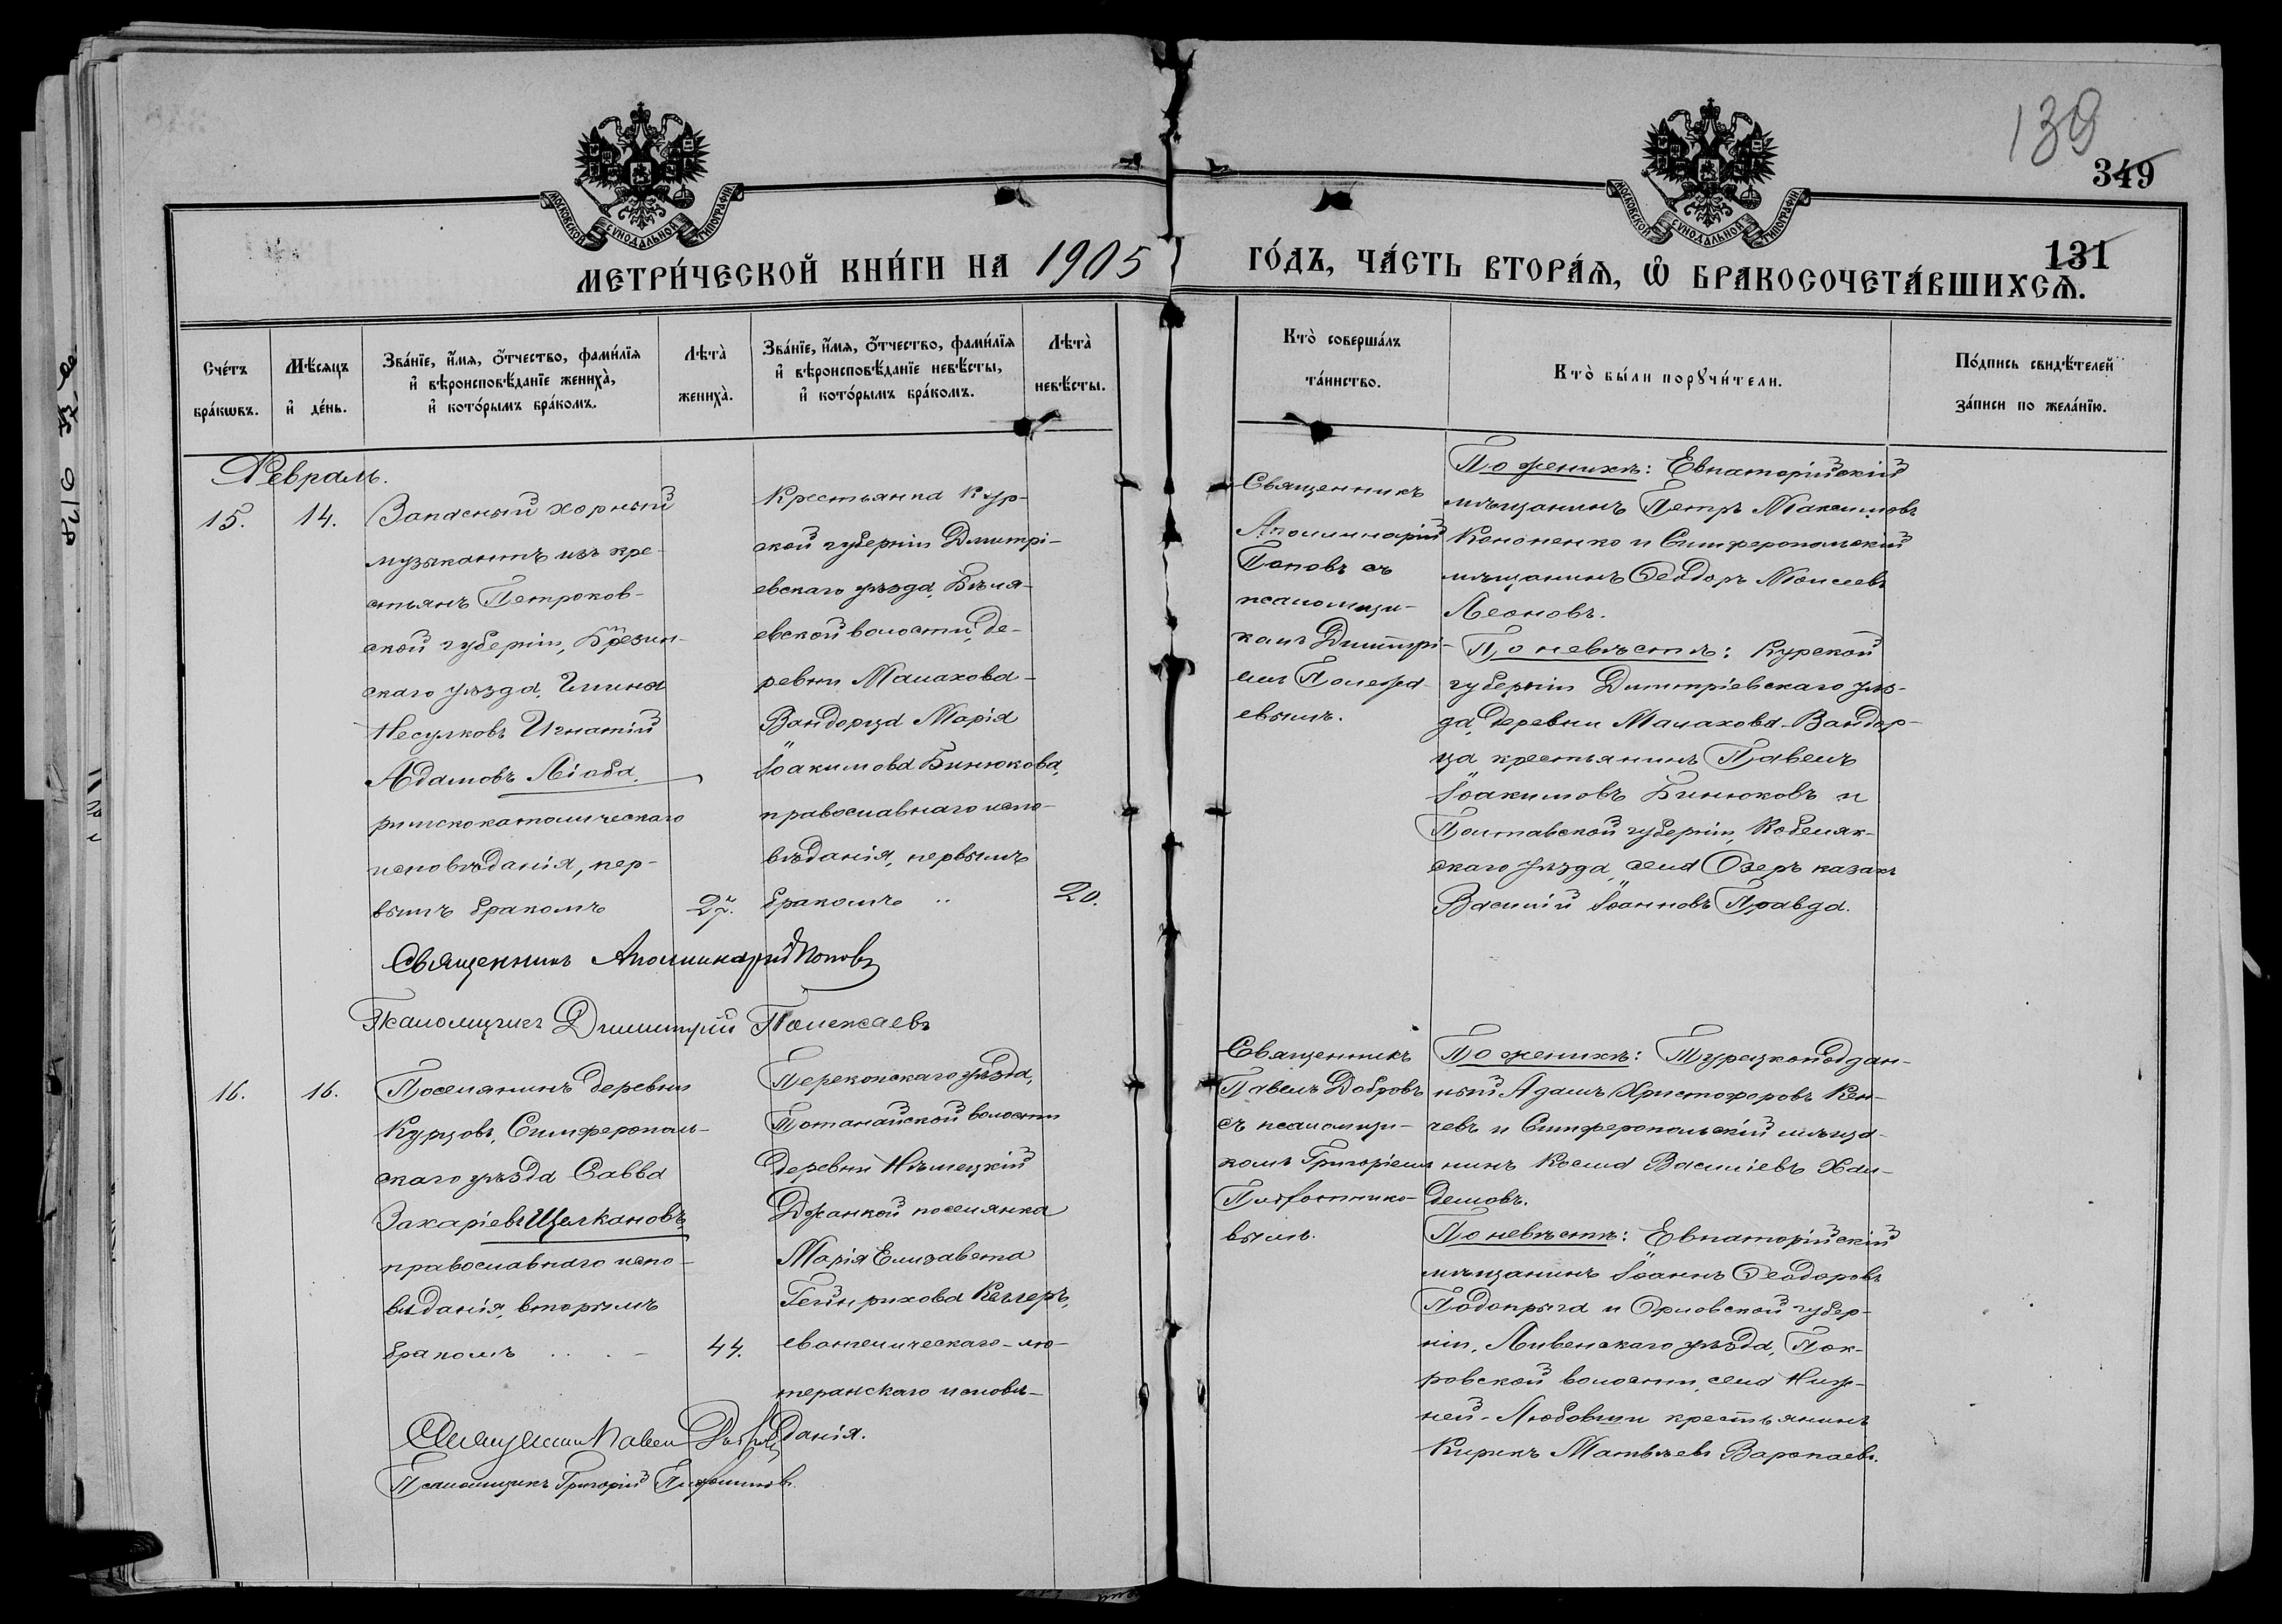 139
349
131
МОСКОВСКОЙ СѴНОДАЛЬНОЙ ТИПОГРАФІИ
МОСКОВСКОЙ СѴНОДАЛЬНОЙ ТИПОГРАФІИ
МЕТРИ́ЧЕСКОЙ КНИ́ГИ НА 1905 ГО́ДЪ, ЧА́СТЬ ВТОРА́Ѧ, Ѽ БРАКОСОЧЕТА́ВШИХСѦ.
Сче́тъ
бра́кѡвъ.
Мѣ́сяцъ
и҆ де́нь.
Зва́нїе, и҆́мя, ѻ҆́тчество, фами́лїя
и҆ вѣроисповѣ́данїе жениха̀,
и҆ кото́рымъ бра́комъ.
Лѣта̀
жениха̀.
Зва́нїе, и҆́мя, ѻ҆́тчество, фами́лїя
и҆ вѣроисповѣ́данїе невѣ́сты,
и҆ кото́рымъ бра́комъ.
Лѣта̀
невѣ́сты.
Кто̀ соверша́лъ
та́инство.
Кто̀ бы́ли порꙋчи́тели.
По́дпись свидѣ́телей
за́писи по жела́нїю.
Февраль.
15.
14.
Запасный хорный
музыкантъ изъ кре-
стьянъ Петроков-
ской губерніи, Брезин-
скаго уѣзда, Гмина
Несулковъ Игнатій
Адамовъ Ліоба
римскокатолическаго
исповѣданія, пер-
вымъ бракомъ
27.
Крестьянка Кур-
ской губерніи Дмитрі-
евскаго уѣзда, Бѣля-
евской волости, де-
ревни Малахова-
Вандарца Марія
Іоакимова Бинюкова,
православнаго испо-
вѣданія, первымъ
бракомъ ..
20.
Священникъ
Аполлинарій
Поповъ съ
псаломщи-
комъ Димитрі-
емъ Полежа-
евымъ.
По женихѣ: Евпаторійскій
мѣщанинъ Петръ Максимовъ
Кононенко и Симферопольскій
мѣщанинъ Ѳеодоръ Моисеевъ
Леоновъ.
По невѣстѣ: Курской
губерніи Димитріевскаго уѣз-
да, деревни Малахова-Вандар-
ца крестьянинъ Павелъ
Іоакимовъ Бинюковъ и
Полтавской губерніи, Кобеляк-
скаго уѣзда, села Озеръ казакъ
Василій Іоанновъ Правда.
Священникъ Аполлинарій Поповъ
Псаломщикъ Димитрій Полежаевъ
16.
16.
Поселянинъ деревни
Курцовъ, Симферополь-
скаго уѣзда Савва
Захаріевъ Щелкановъ,
православнаго испо-
вѣданія, вторымъ
бракомъ . . . -
44.
Перекопскаго уѣзда,
Потанайской волости
деревни Нѣмецкій
Джанкой поселянка
Марія Елизавета
Гейнрихова Келлеръ,
евангелическаго-лю-
теранскаго исповѣ-
данія.
Священникъ
Павелъ Добровъ
съ псаломщи-
комъ Григоріемъ
вымъ.
По женихѣ: Турецкоподдан-
ный Адамъ Христофоровъ Кен-
чевъ и Симферопольскій мѣща-
нинъ Косма Василіевъ Хали-
демовъ.
По невѣстѣ: Евпаторійскій
мѣщанинъ Іоаннъ Ѳеодоровъ
Подопрыга и Орловской губер-
ніи, Ливенскаго уѣзда, Пок-
ровской волости, села Ниж-
ней-Любовши крестьянинъ
Кирикъ Матвѣевъ Варопаевъ.
Священникъ Павелъ
Псаломщикъ Григорій